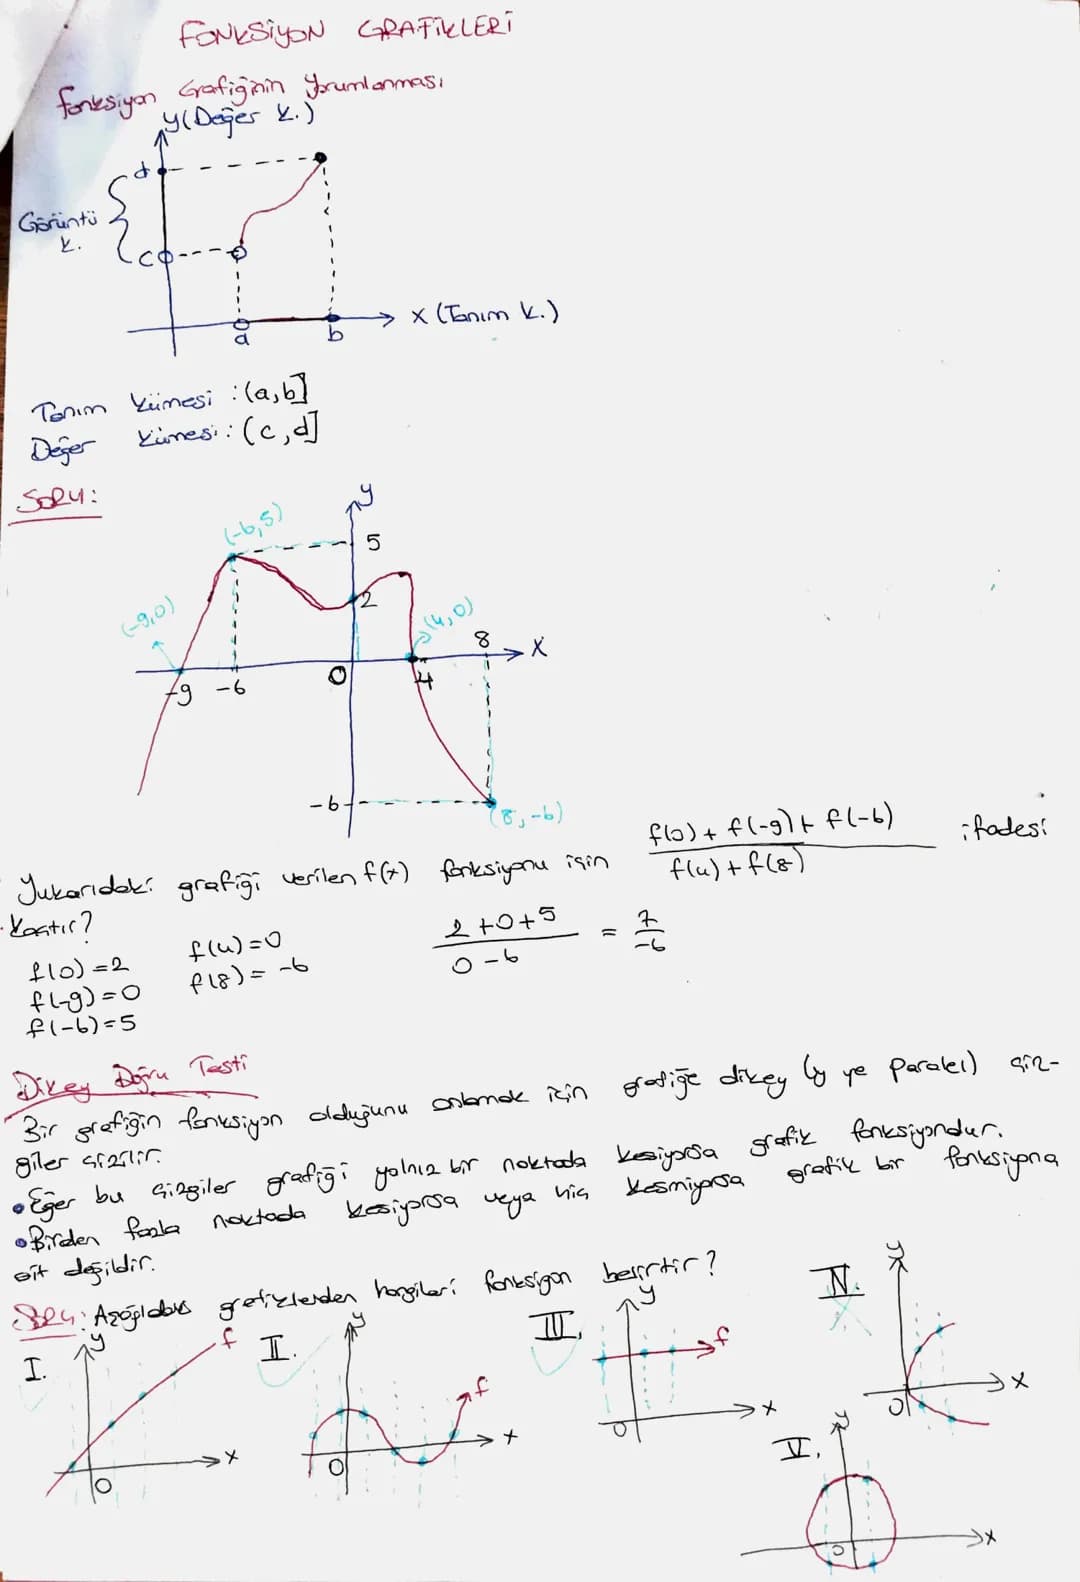 FONKSİYON GRAFİKLERİ
Fonksiyon Grafiğinin Yorumlanması
y(Değer k.)
d
Görüntü
k.
c
a
b
x (Tanım k.)
Tanım kümesi : (a,b]
Değer kümesi : (c,d]
SORU:
y
(-6,5)
5
(-9,0)
2
(4,0)
8
x
-9
-6
0
4
-6
(8,-6)
f(0) + f(-9) + f(-6)
ifadesi
f(4) + f(8)
Yukarıdaki grafiği verilen f(x) fonksiyonu için
kaçtır?
f(0)=2
f(-9)=0
f(-6)=5
f(4)=0
f(8)=-6
2+0+5
0-6
=
7
-6
Dikey Doğru Testi
Bir grafiğin fonksiyon olduğunu anlamak için grafiğe dikey (y ye paralel) çiz-
giler çizilir.
• Eğer bu çizgiler grafiği yalnız bir noktada kesiyorsa grafik fonksiyondur.
• Birden fazla noktada kesiyorsa veya hiç kesmiyorsa grafik bir fonksiyona
ait değildir.
SORU: grafiklerden hangileri fonksiyon belirtir?
I.
y
f
x
0
II.
y
f
x
0
III.
y
f
x
0
IV.
y
x
0
V.
y
x
0